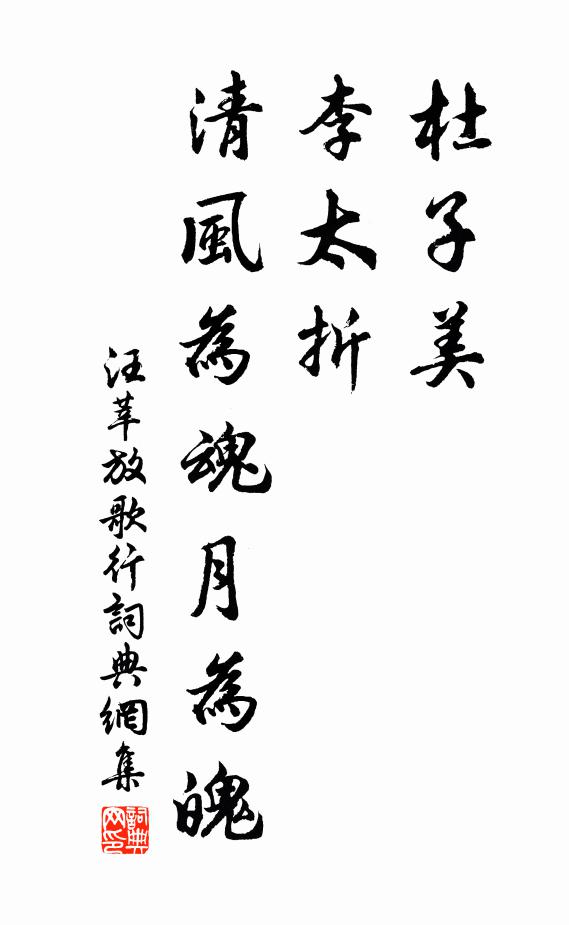 杜子美
李太折
清風為魂月為魄
汪莘放歌行詞典網集
詞典网印